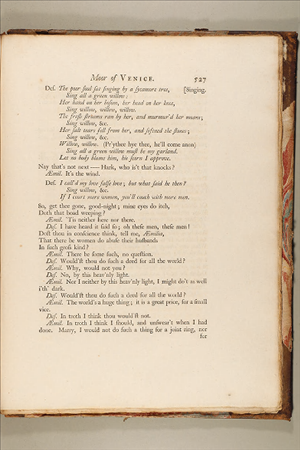 Moor of VENICE. 527
Des. The poor soul sat singing by a sycamore tree, [Singing.
Sing all a green willow:
Her hand on her bosom, her head on her knee,
Sing willow, willow, willow.
The fresh streams ran by her, and murmur'd her moans;
Sing willow, &c.
Her salt tears fell from her, and soften'd the stones;
Sing willow, &c.
Willow, willow. (Pr'ythee hye thee, he'll come anon)
Sing all a green willow must be my garland.
Let no body blame him, his scorn I approve.
Nay that's not next — Hark, who is't that knocks?
Æmil. It's the wind.
Des. I call'd my love false love; but what said he then?
Sing willow, &c.
If I court more women, you'll couch with more men.
So, get thee gone, good-night; mine eyes do itch,
Doth that boad weeping?
Æmil. 'Tis neither here nor there.
Des. I have heard it said so; oh these men, these men!
Dost thou in conscience think, tell me, Æmilia,
That there be women do abuse their husbands
In such gross kind?
Æmil. There be some such, no question.
Des. Would'st thou do such a deed for all the world?
Æmil. Why, would not you?
Des. No, by this heav'nly light.
Æmil. Nor I neither by this heav'nly light, I might do't as well
i'th' dark.
Des. Would'st thou do such a deed for all the world?
Æmil. The world's a huge thing; it is a great price, for a small
vice.
Des. In troth I think thou would'st not.
Æmil. In troth I think I should, and undoo't when I had
done. Marry, I would not do such a thing for a joint ring, nor
for